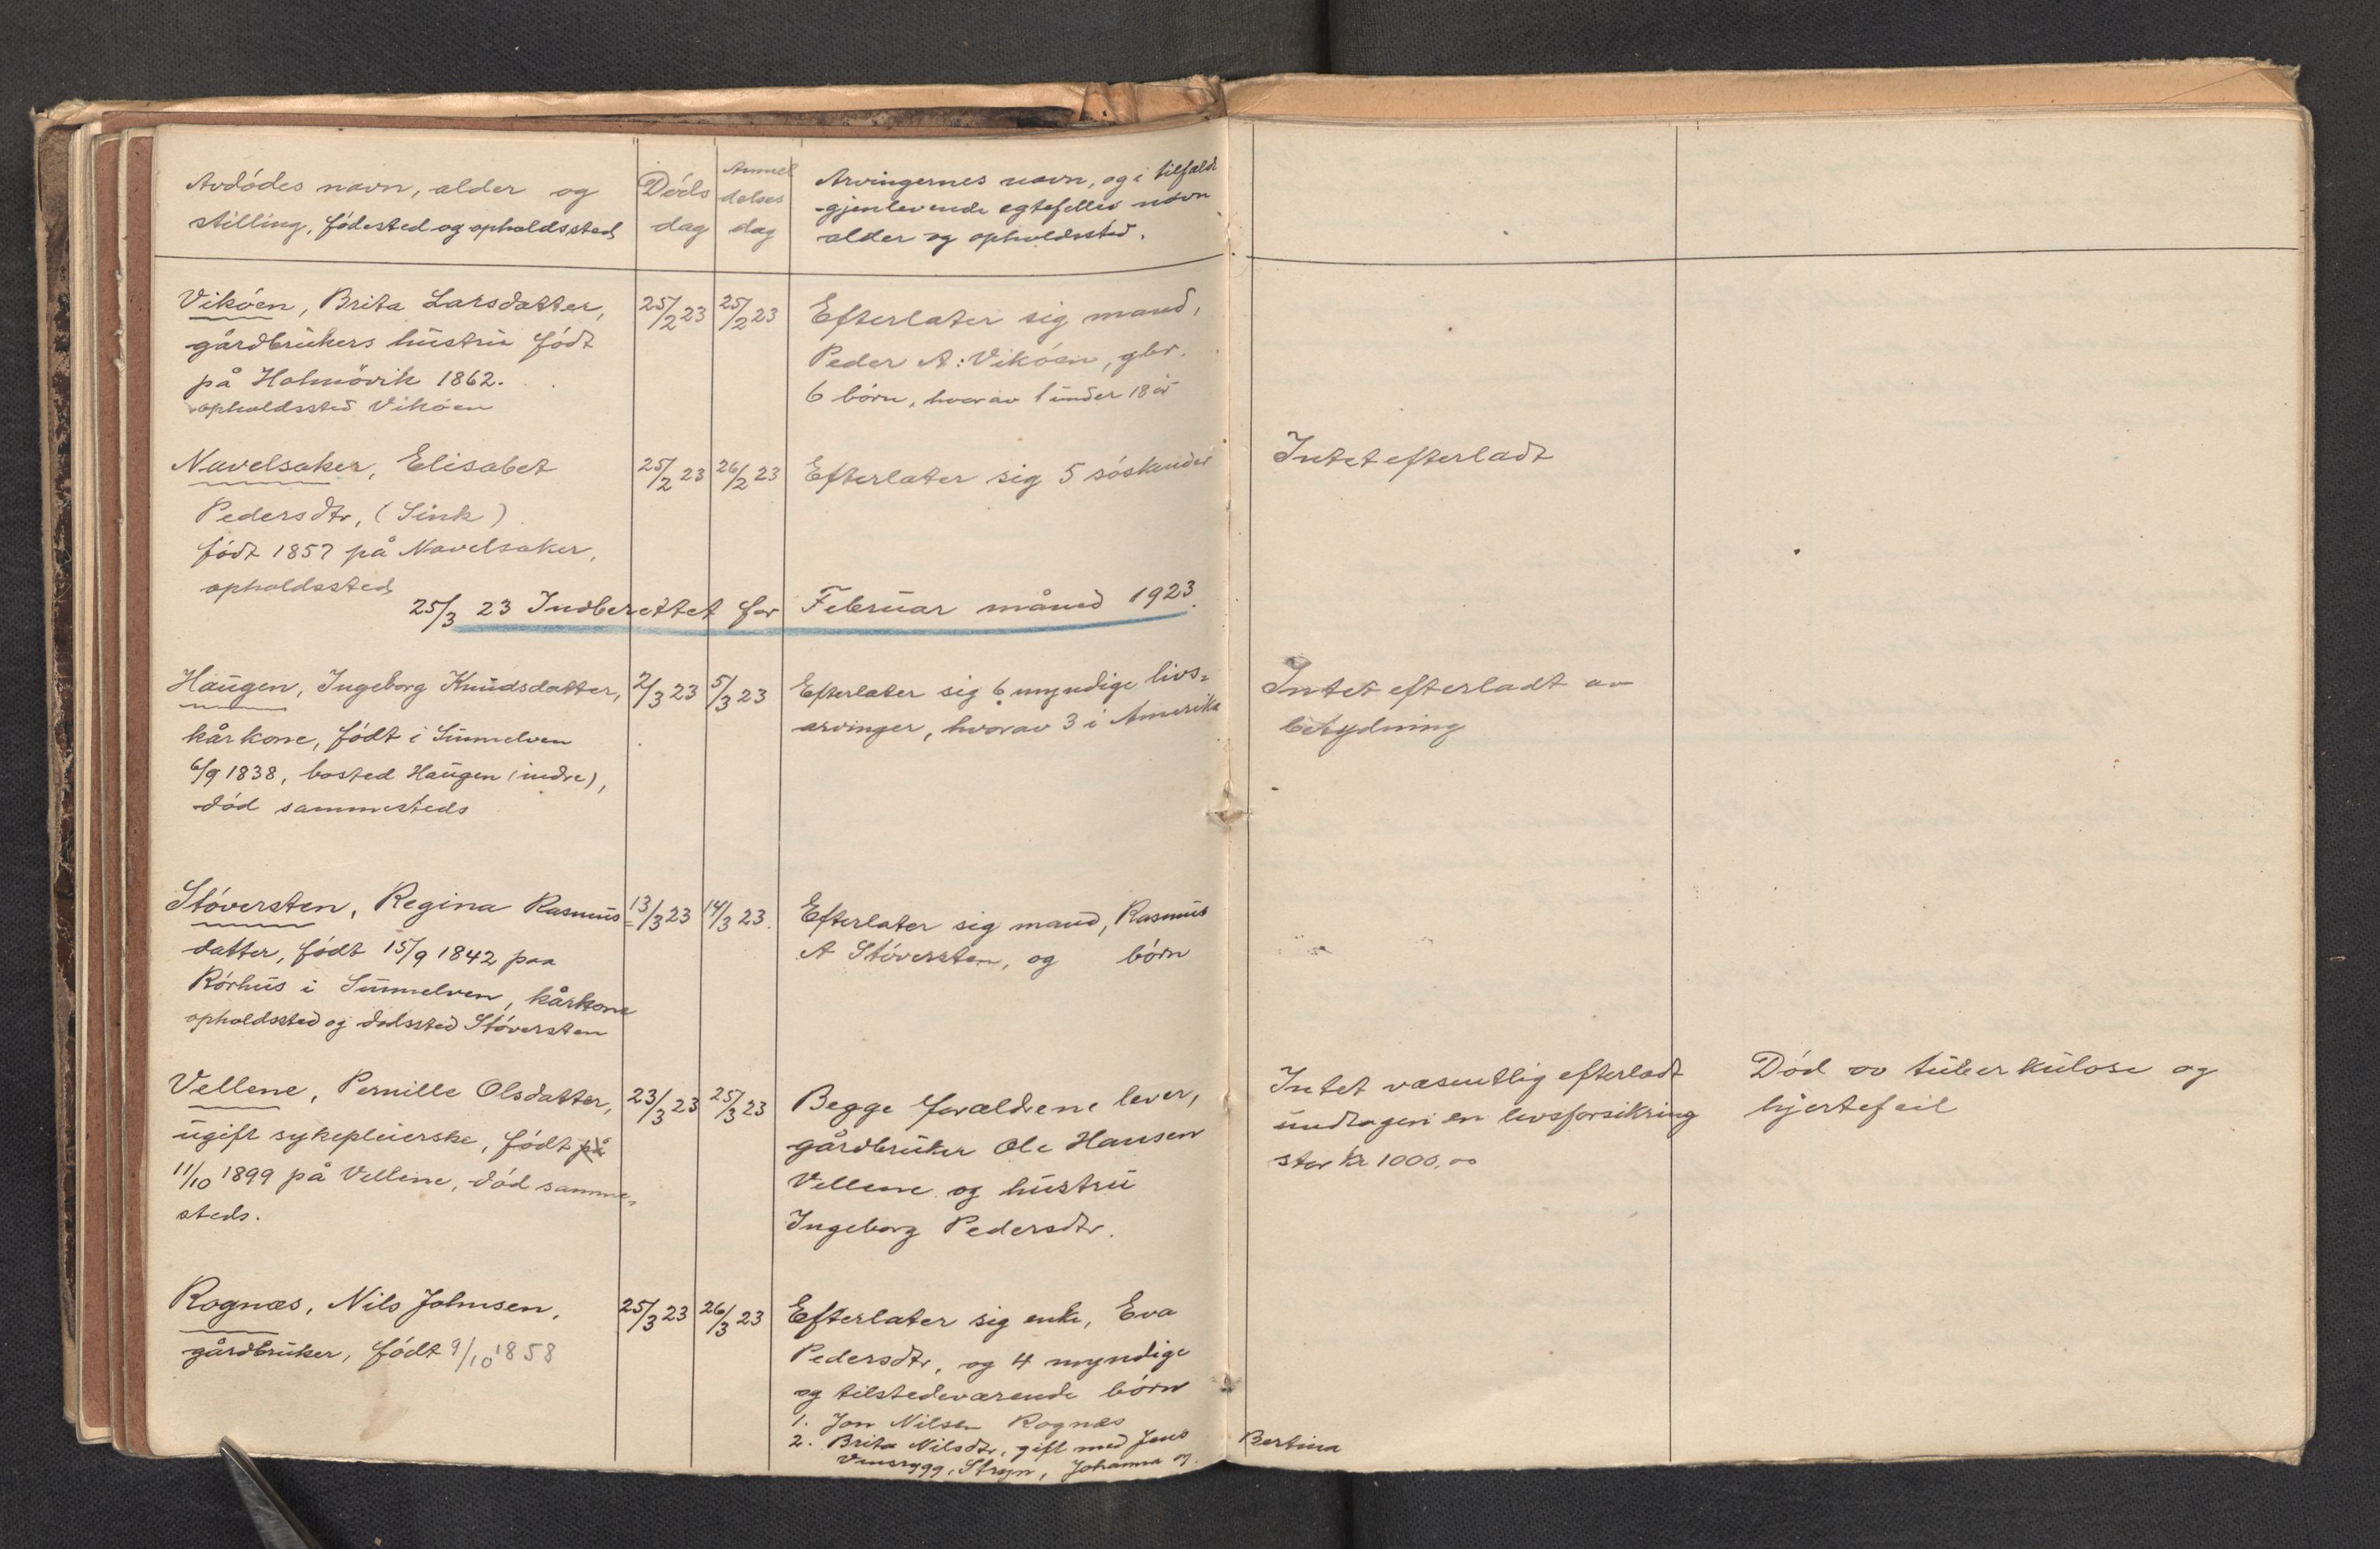 Avdódes navn, alder og
stilling, fódested og opholdssted
Döds
dag
Anmel
delses
dag
Arvingernes navn, og i tilfælde
gjenlevende egtefelles navn
alder og opholdssted.
Vikóen, Brita Larsdatter,
gårdbrukers hustru fódt
på Holmövik 1862.
opholdssted Vikóen
25/2 23
25/2 23
Efterlater sig mand,
Peder A. Vikóen, gbr.
6 börn, hvorav 1 under 18 år
Navelsaker, Elisabet
Pedersdtr, (Sink)
fódt 1857 på Navelsaker,
opholdssted
25/2 23
26/2 23
Efterlater sig 5 söskender
Intet efterladt
25/3 23 Indberettet for Februar måned 1923.
Haugen, Ingeborg Knudsdatter,
kårkone, fódt i Sunnelven
6/9 1838, bosted Haugen (indre),
död sammesteds
2/3 23
5/3 23
Efterlater sig 6 myndige livs=
arvinger, hvorav 3 i Amerika
Intet efterladt av
betydning
Stóversten, Regina Rasmus=
datter, fódt 15/9 1842 paa
Rórhus i Sunnelven, kårkone
opholdssted og dodssted Stóversten
13/3 23
14/3 23.
Efterlater sig mand, Rasmus
A Stóversten, og börn
Vellene, Pernille Olsdatter,
ugift sykepleierske, fódt på
11/10 1899 på Vellene, död samme=
steds.
23/3 23
25/3 23
Begge forældrene lever,
gårdbruker Ole Hansen
Vellene og hustru
Ingeborg Pedersdtr.
Intet væsentlig efterladt
undtagen en livsforsikring
stor Kr 1000,00
Död av tuberkulose og
hjertefeil
Rognæs, Nils Johnsen,
gårdbruker, fódt 9/10 1858
25/3 23
26/3 23
Efterlater sig enke, Eva
Pedersdtr, og 4 myndige
og tilstedeværende börn
1. Jon Nilsen Rognæs
2. Brita Nilsdtr, gift med Jens
Vinsrygg, Stryn, Johanna og
Bertina